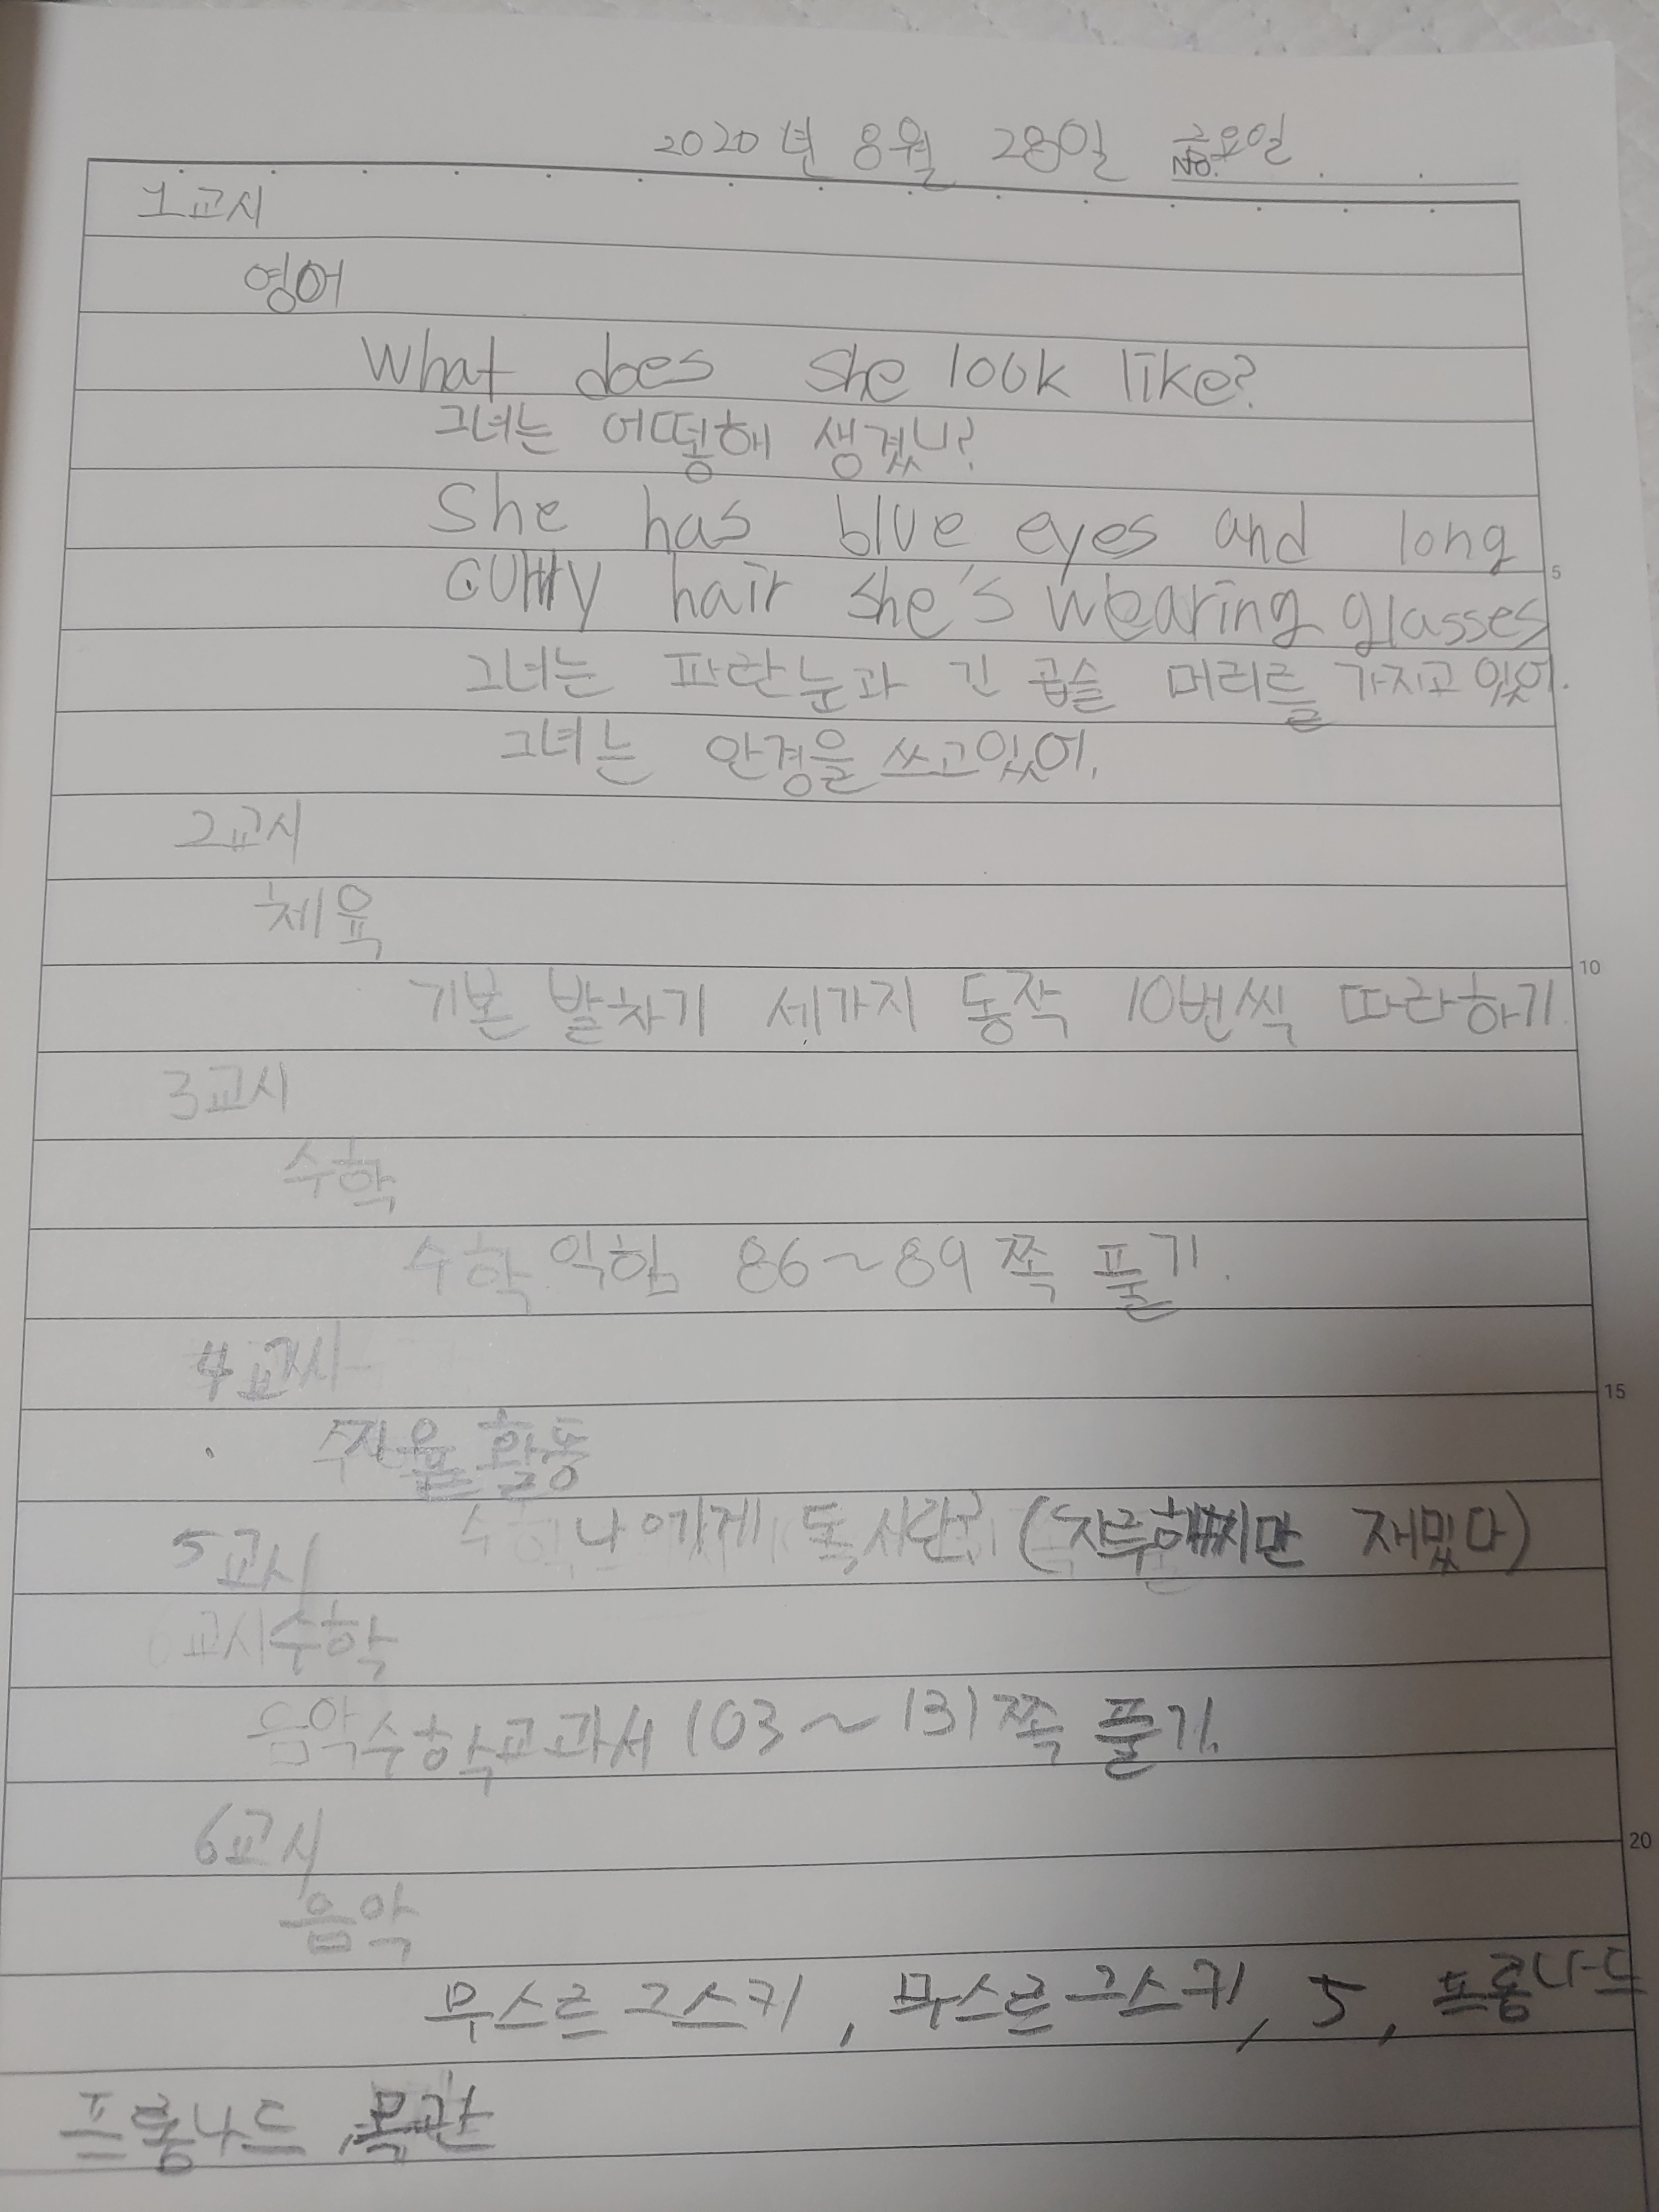 2020년 8월 28일 금요일
No.
1교시
영어
What does she look like?
그녀는 어떻해 생겼니?
She has blue eyes and long
curly hair she's wearing glasses
그녀는 파란눈과 긴 곱슬 머리를 가지고있어.
그녀는 안경을 쓰고있어.
5
2교시
체육
10
기본 발차기 세가지 동작 10번씩 따라하기
3교시
수학
수학 익힘 86~89쪽 풀기.
4교시
15
자율 활동
나에게 독서란? (지루하지만 재밌다)
5교시
수학
수학교과서 103~131쪽 풀기.
6교시
20
음악
무스르그스키, 무스르그스키, 5, 프롬나드
프롬나드, 목관